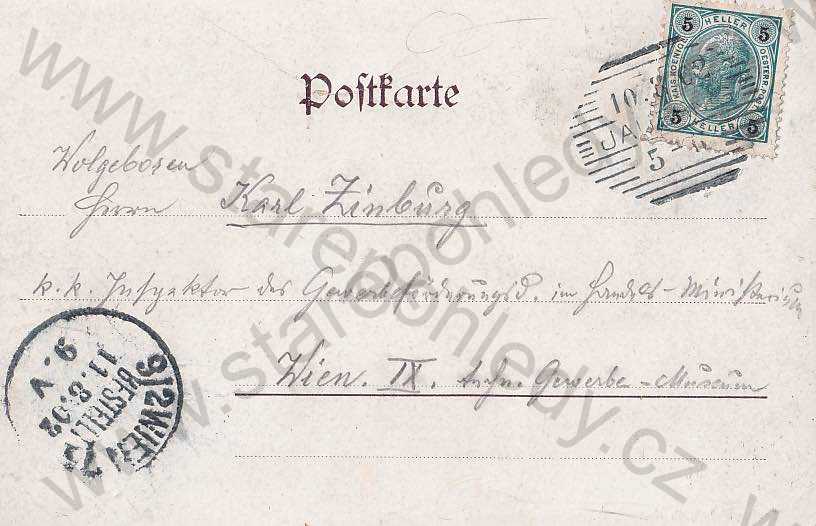 5 HELLER 5
KAIS. KOENIGL. OESTERR. POST
5 HELLER 5
10. 8. 02
JA
5
Postkarte
Wolgeboren
Herrn Karl Zinburg
k. k. Inspektor des Gewerbeförderungsd. im Handels-Ministerium
Wien. IX. Gewerbe-Museum
9/2 WIEN 72
BESTELLT
11. 8. 02
9. V
www.starepohledy.cz